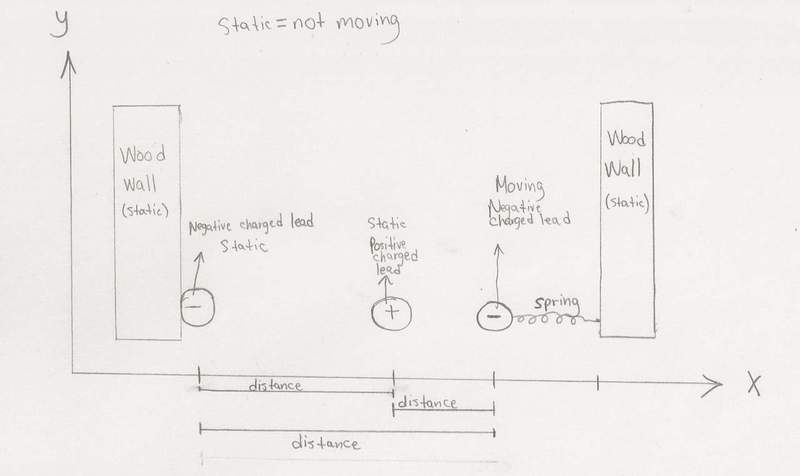 y
Static = not moving
Wood
Wall
(static)
Negative charged lead
Static
Static
Positive
charged
lead
Moving
Negative
charged lead
Wood
Wall
(static)
−
+
−
spring
X
distance
distance
distance